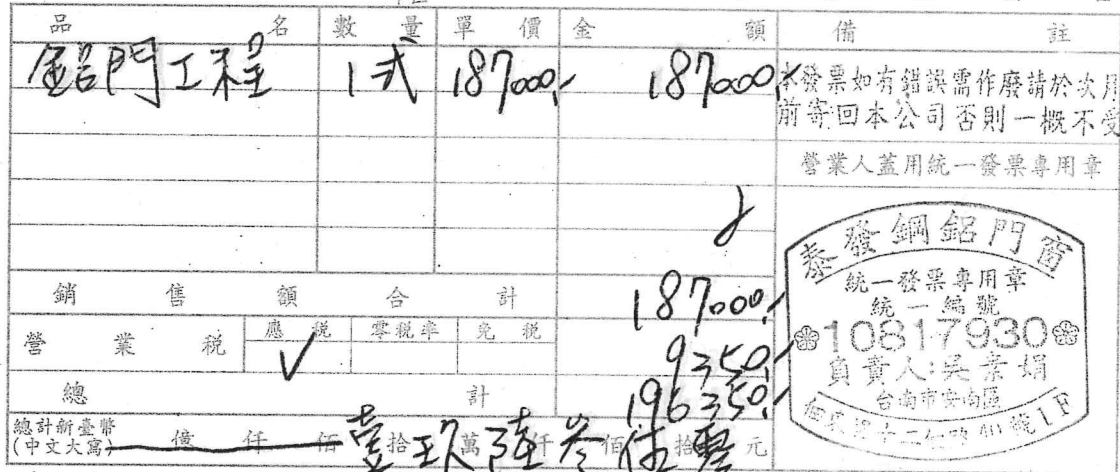 品名 數量 單價 金額 備註
鋁門工程 1式 187000,- 187000,-
本發票如有錯誤需作廢請於次月
前寄回本公司否則一概不受
營業人蓋用統一發票專用章
銷售額合計 187000,-
營業稅 應稅 ✓ 零稅率 免稅 9350,-
總計 196350,-
總計新臺幣
(中文大寫) 億 仟 佰 壹拾 玖萬 陸仟 叁佰 伍拾 零元
泰發鋼鋁門窗
統一發票專用章
統一編號
10817930
負責人:吳素娟
台南市安南區
40號1F